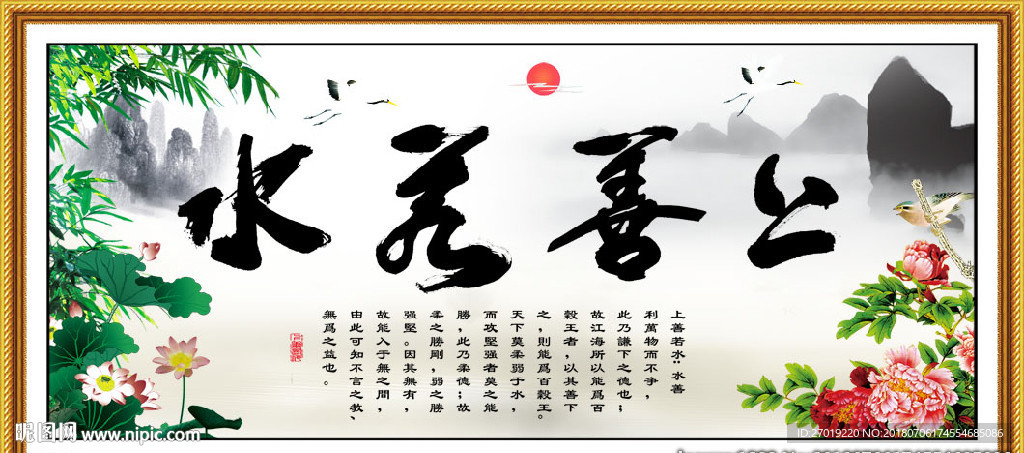 上善若水
上善若水"水善
利萬物而不爭，
此乃謙下之德也；
故江海所以能爲百
穀王者，以其善下
之，則能爲百穀王。
天下莫柔弱于水，
而攻堅强者莫之能
勝，此乃柔德；故
柔之勝剛，弱之勝
强堅。因其無有，
故能入于無之間，
由此可知不言之教、
無爲之益也。
昵图网 www.nipic.com
ID:27019220 NO:20180706174554685086